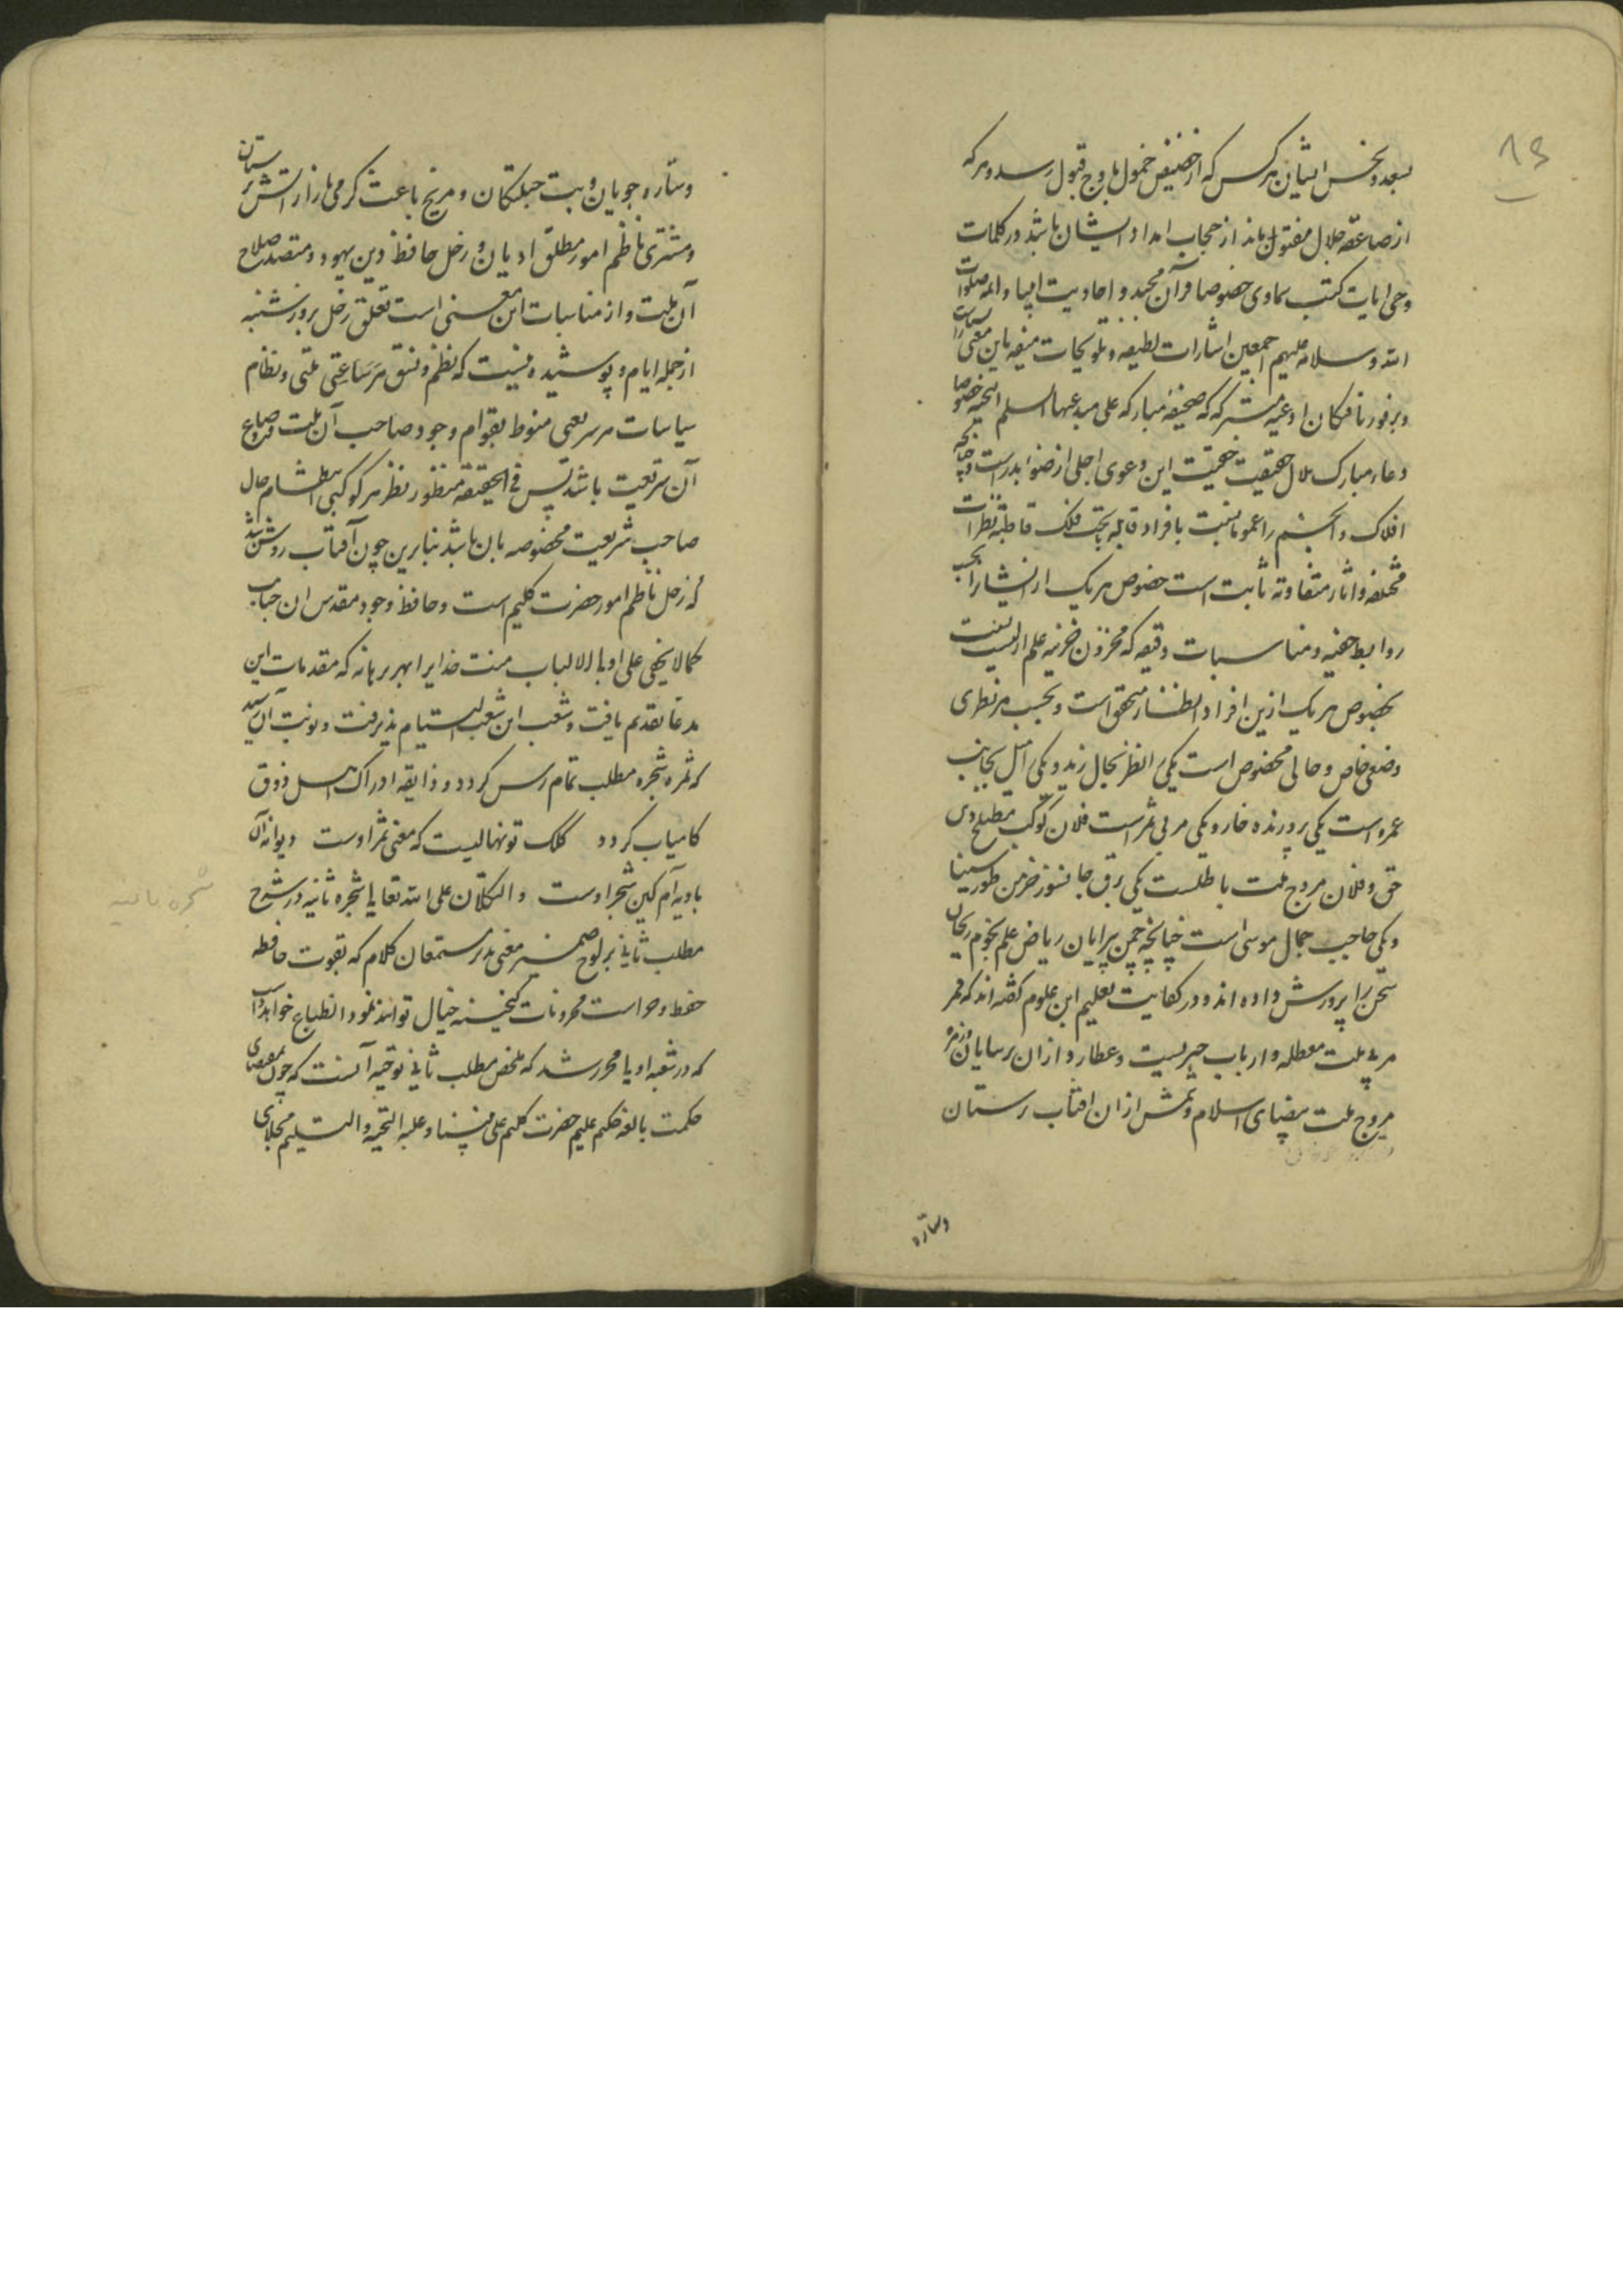 ۱۳
بسعد و نحس ایشان هر کس که از حضیض خمول باوج قبول رسد و هر که
از صاعقه جلال مقتول ماند از حجاب امداد ایشان باشد در کلمات
وحی ایات کتب سماوی خصوصا قرآن مجید و احادیث انبیا و ائمه صلوات
الله و سلامه علیهم اجمعین اشارات لطیفه و تلویحات باین معنی
و بر ادعیه که صحیفه مبارکه علی مبدعها السلم التحیه خصوصا
دعاء مبارک هلال حقیقت این دعوی اجلی از ضوء بدرست
افلاک و انجم را عموما نسبت بافراد قابله تحت فلک قاطبة نظرات
مختلفه و اثار متفاوته ثابت است خصوص هر یک از ایشانرا بحسب
روابط خفیه و مناسبات دقیقه که مخزون خزینه علم ازلیست نسبت
بخصوص هر یک ازین افراد انظار متحقق است و بحسب هر نظری
وضعی خاص و حالی مخصوص است یکی را نظر بحال زید و یکی را میل بجانب
عمرو است یکی پرورنده خار و یکی مربی ثمر است فلان کوکب مصلح دین
حق و فلان مروج ملت باطلست یکی برق جانسوز خرمن طور سینا
و یکی حاجب جمال موسی است چنانچه چمن پیرایان ریاض علم نجوم ریحان
سخن را پرورش داده اند و در کفایت تعلیم این علوم گفته اند که قمر
مربی ملت معطله و ارباب حیر نیست و عطارد از آن ترسایان و زهره
مروج ملت بیضای اسلام و شمس از آن افتاب پرستان
وستاره
وستاره جویان و بت و مریخ باعث گرمی بازار آتش پرستان
و مشتری ناظم امور مطلق ادیان و زحل حافظ دین یهود و متصدی صلاح
آن ملت و از مناسبات این معنی است تعلق زحل بروز شنبه
از جمله ایام و پوشیده نیست که نظم و نسق هر ملتی و نظام
سیاسات هر شریعتی منوط بقوام وجود صاحب آن ملت و صاحب
آن شریعت باشد پس فی الحقیقة منظور نظر هر کوکبی انتظام حال
صاحب شریعت مخصوصه بان باشد بنابرین چون آفتاب روشن شد
که زحل ناظم امور حضرت کلیم است و حافظ وجود مقدس ان جناب
کما لا یخفی علی اولی الالباب منت خدایرا بهر برهانه که مقدمات این
مدعا تقدیم یافت و شعب این شعب التیام پذیرفت و نوبت آن رسید
که ثمره شجره مطلب تمام رس گردد و ذایقه ادراک اهل ذوق
کامیاب گردد کلک تو نهالیست که معنی ثمر اوست دیوانه آن
بادیه آم کین شجر اوست و التکلان علی الله تعالی شجره ثانیه در شرح
شجره ثانیه
مطلب ثانی بر لوح ضمیر معنی پذیر مستمعان کلام که بقوت حافظه
حفظ و حراست مخزونات گنجینه خیال توانند نمود انطباع خواهد داشت
که در شعبه اولی محرر شد که ملخص مطلب ثانی توجیه آنست که چون بمقتضای
حکمت بالغه حکیم علیم حضرت کلیم علی نبینا و علیه التحیة و التسلیم بجلای